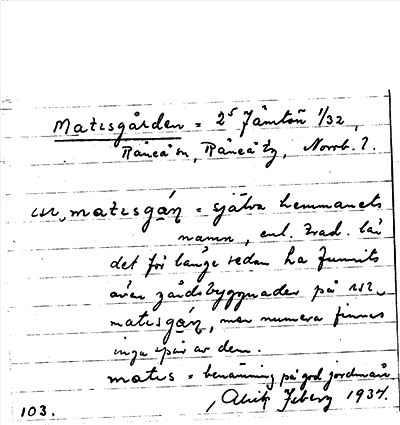 Matisgården = 2⁵ Jämtön 1/32,
Råneå sn, Råneå tg, Norrb. l.
matisgán = själva hemmanets
namn, enl. trad. lär
det för länge sedan ha funnits
även gårdsbyggnader på
matisgán, men numera finnes
inga spår av dem.
matis = benämning på god jordmån
1937.
103.